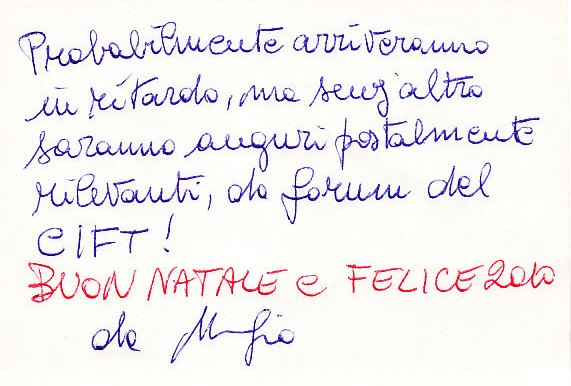 Probabilmente arriveranno
in ritardo, ma senz'altro
saranno auguri postalmente
rilevanti, da forum del
CIFT!
BUON NATALE e FELICE 2010
da